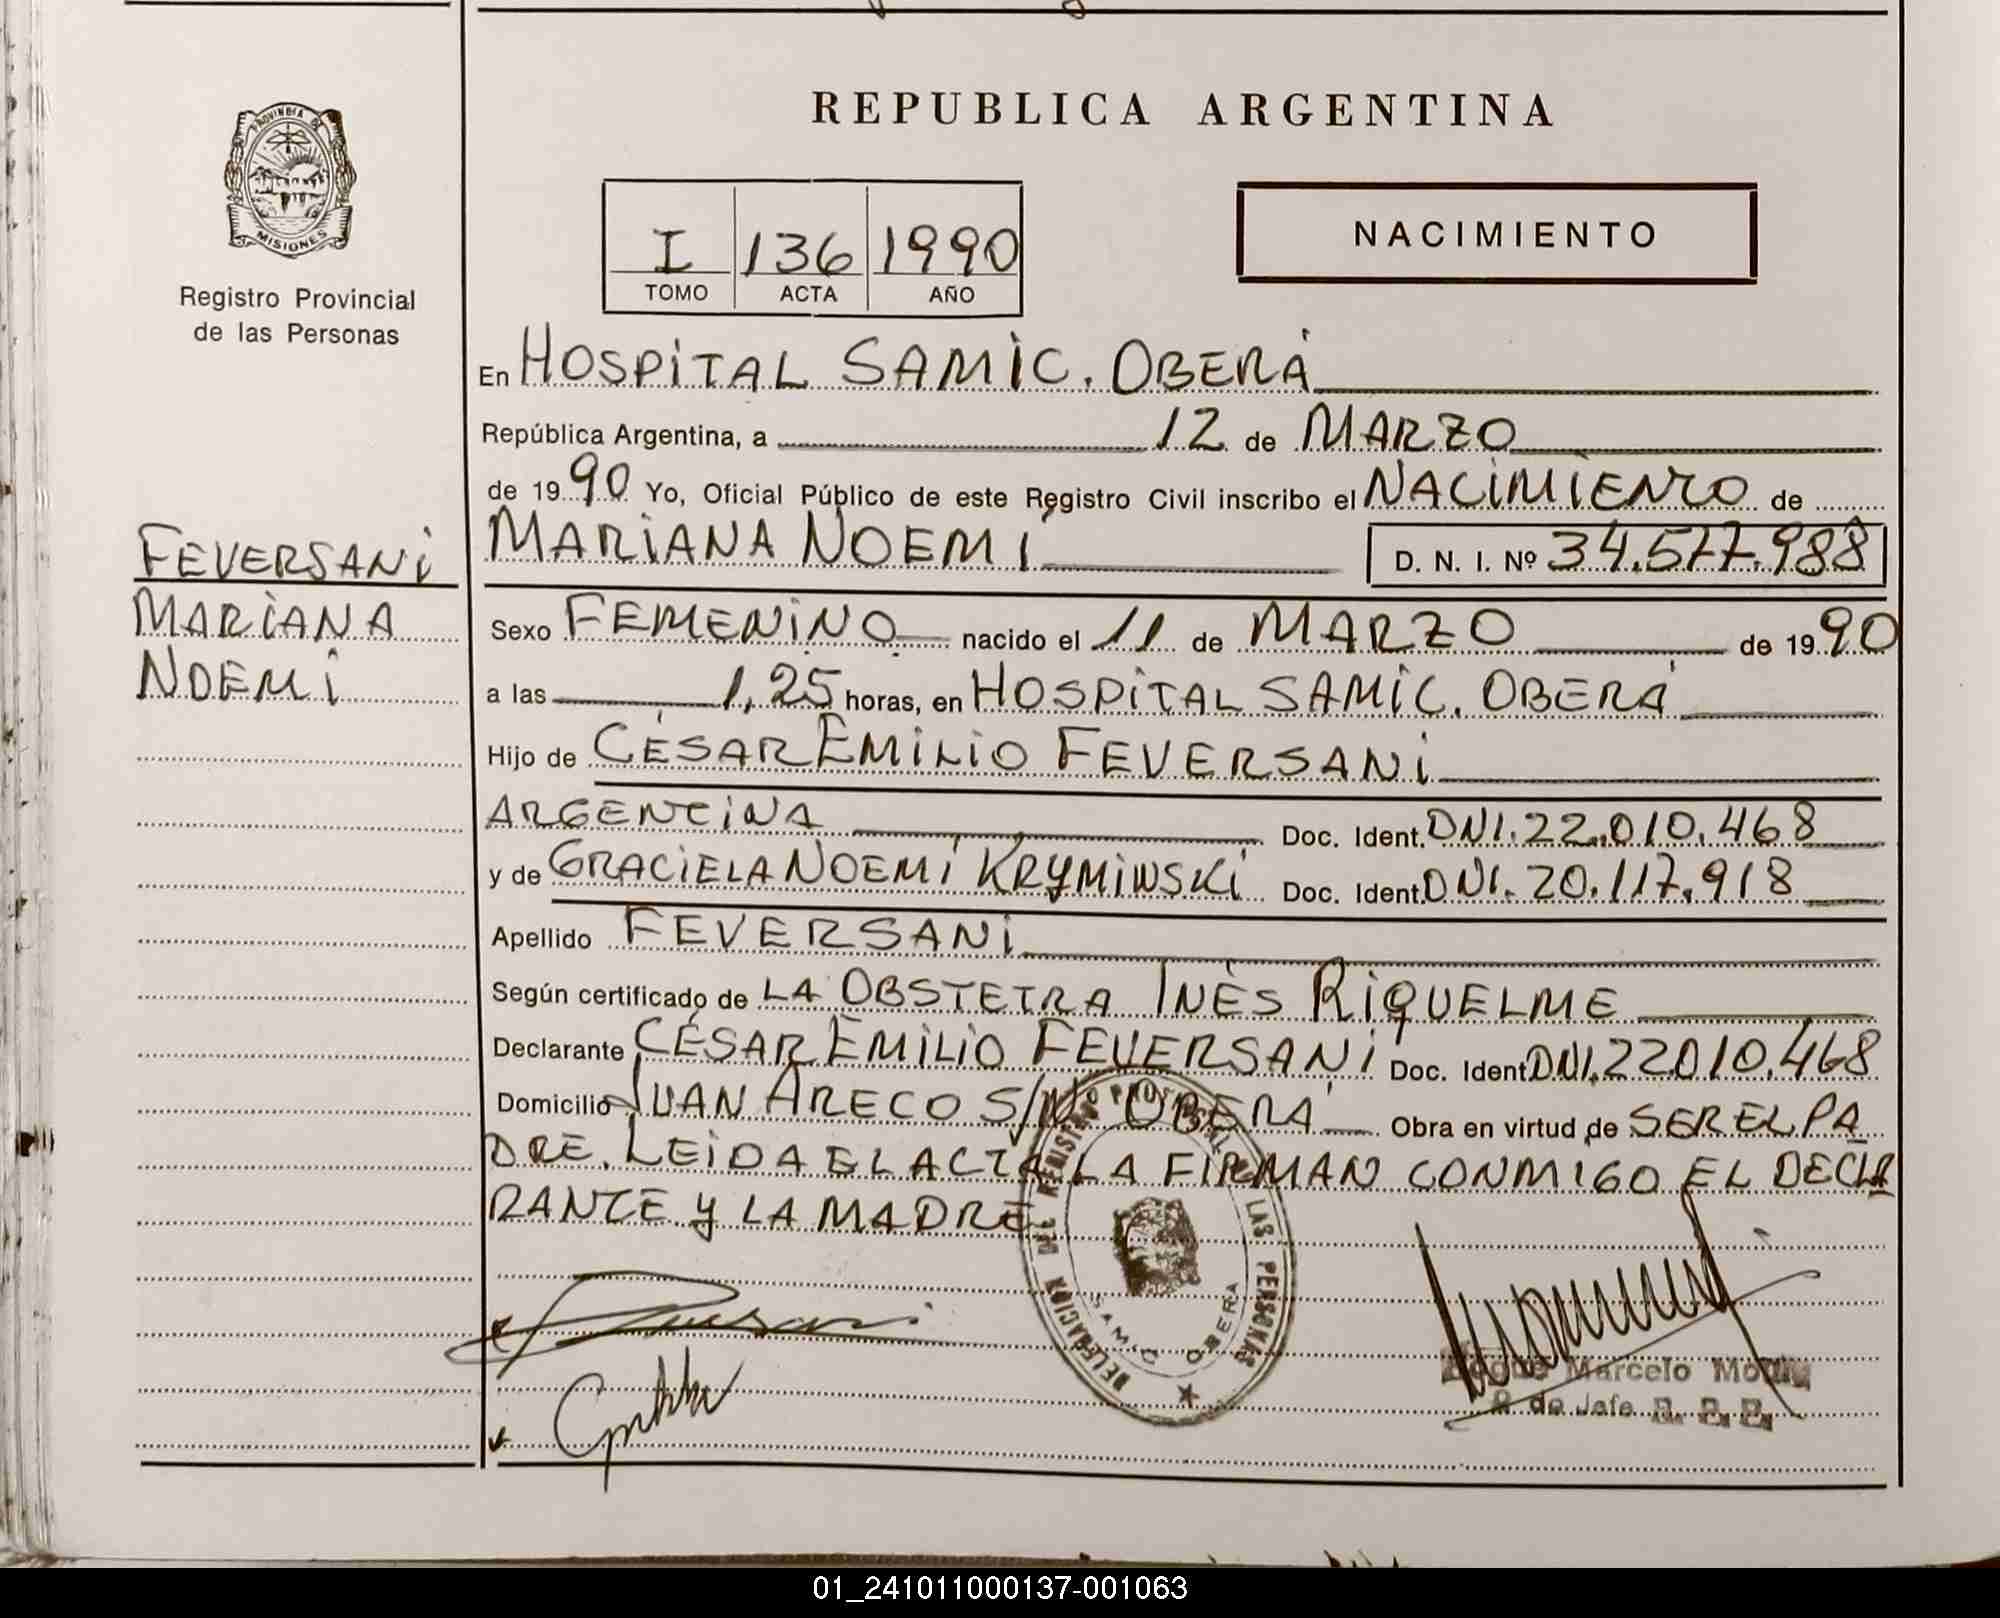 REPUBLICA ARGENTINA
PROVINCIA DE
MISIONES
Registro Provincial
de las Personas
I 136 1990
TOMO ACTA AÑO
NACIMIENTO
En HOSPITAL SAMIC. OBERÁ
República Argentina, a 12 de MARZO
de 1990 Yo, Oficial Público de este Registro Civil inscribo el NACIMIENTO de
FEVERSANI
MARIANA
NOEMI
MARIANA NOEMÍ D. N. I. Nº 34.577.988
Sexo FEMENINO nacido el 11 de MARZO de 1990
a las 1,25 horas, en HOSPITAL SAMIC. OBERÁ
Hijo de CÉSAR EMILIO FEVERSANI
ARGENTINA Doc. Ident. DNI.22.010.468
y de GRACIELA NOEMÍ KRYMINSKI Doc. Ident. DNI.20.117.918
Apellido FEVERSANI
Según certificado de LA OBSTETRA INÉS RIQUELME
Declarante CÉSAR EMILIO FEVERSANI Doc. Ident. DNI.22.010.468
Domicilio JUAN ARECO S/Nº OBERÁ Obra en virtud de SER EL PA
DRE. LEIDA EL ACTA LA FIRMAN CONMIGO EL DECLA
RANTE Y LA MADRE
DELEGACION DEL REGISTRO PROVINCIAL DE LAS PERSONAS
SAMIC OBERA
Marcelo
de Jefe R. P. P.
01_241011000137-001063